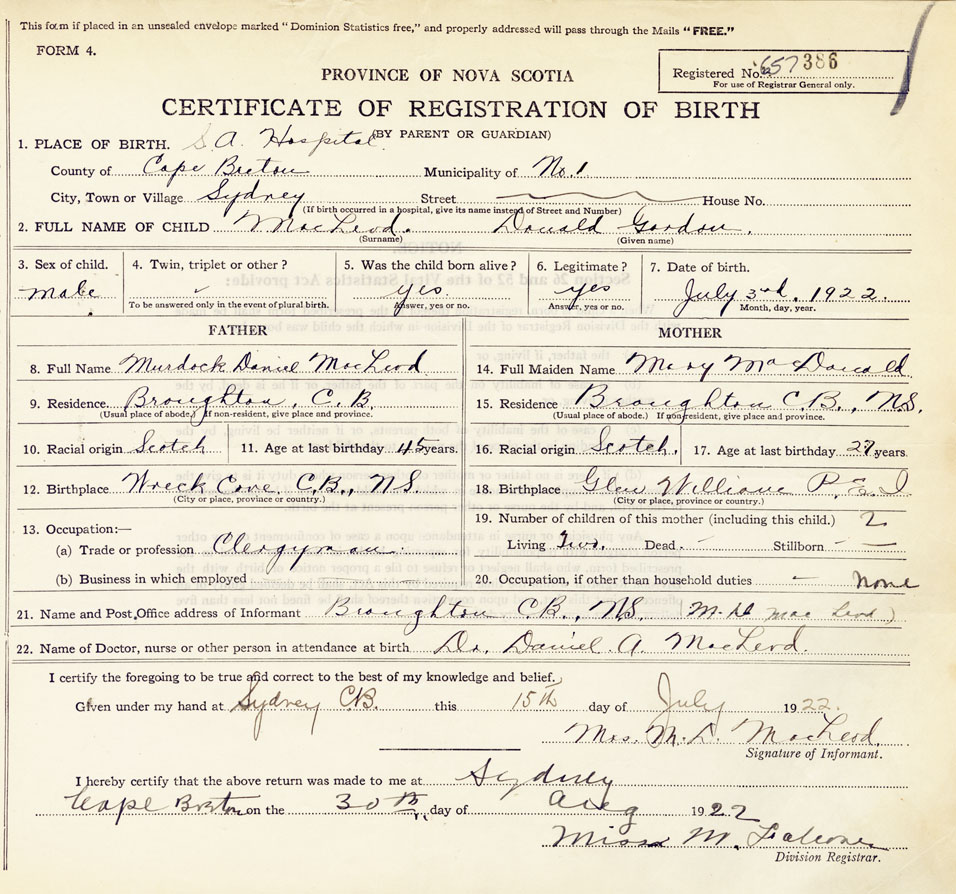 This form if placed in an unsealed envelope marked "Dominion Statistics free," and properly addressed will pass through the Mails "FREE."
FORM 4.
PROVINCE OF NOVA SCOTIA
Registered No. 657386
For use of Registrar General only.
CERTIFICATE OF REGISTRATION OF BIRTH
(BY PARENT OR GUARDIAN)
1. PLACE OF BIRTH. S.A. Hospital
County of Cape Breton Municipality of No. 1
City, Town or Village Sydney Street House No.
(If birth occurred in a hospital, give its name instead of Street and Number)
2. FULL NAME OF CHILD MacLeod. Donald Gordon.
(Surname) (Given name)
3. Sex of child. 4. Twin, triplet or other? 5. Was the child born alive? 6. Legitimate? 7. Date of birth.
male yes yes July 3rd, 1922.
To be answered only in the event of plural birth. Answer, yes or no. Answer, yes or no. Month, day, year.
FATHER MOTHER
8. Full Name Murdock Daniel MacLeod 14. Full Maiden Name Mary MacDonald
9. Residence Broughton, C.B. 15. Residence Broughton C.B., N.S.
(Usual place of abode.) If non-resident, give place and province. (Usual place of abode.) If non-resident, give place and province.
10. Racial origin Scotch 11. Age at last birthday 45 years. 16. Racial origin Scotch. 17. Age at last birthday 27 years.
12. Birthplace Wreck Cove, C.B., N.S. 18. Birthplace Glen William P.E.I
(City or place, province or country.) (City or place, province or country.)
13. Occupation:— 19. Number of children of this mother (including this child.) 2
(a) Trade or profession Clergyman. Living Two. Dead - Stillborn -
(b) Business in which employed 20. Occupation, if other than household duties - None
21. Name and Post Office address of Informant Broughton C.B., N.S. (M.D. MacLeod)
22. Name of Doctor, nurse or other person in attendance at birth Dr. Daniel A. MacLeod.
I certify the foregoing to be true and correct to the best of my knowledge and belief.
Given under my hand at Sydney C.B. this 15th day of July 1922.
Mrs. M. D. MacLeod.
Signature of Informant.
I hereby certify that the above return was made to me at Sydney
Cape Breton on the 30th day of Aug 1922
Miss M.
Division Registrar.